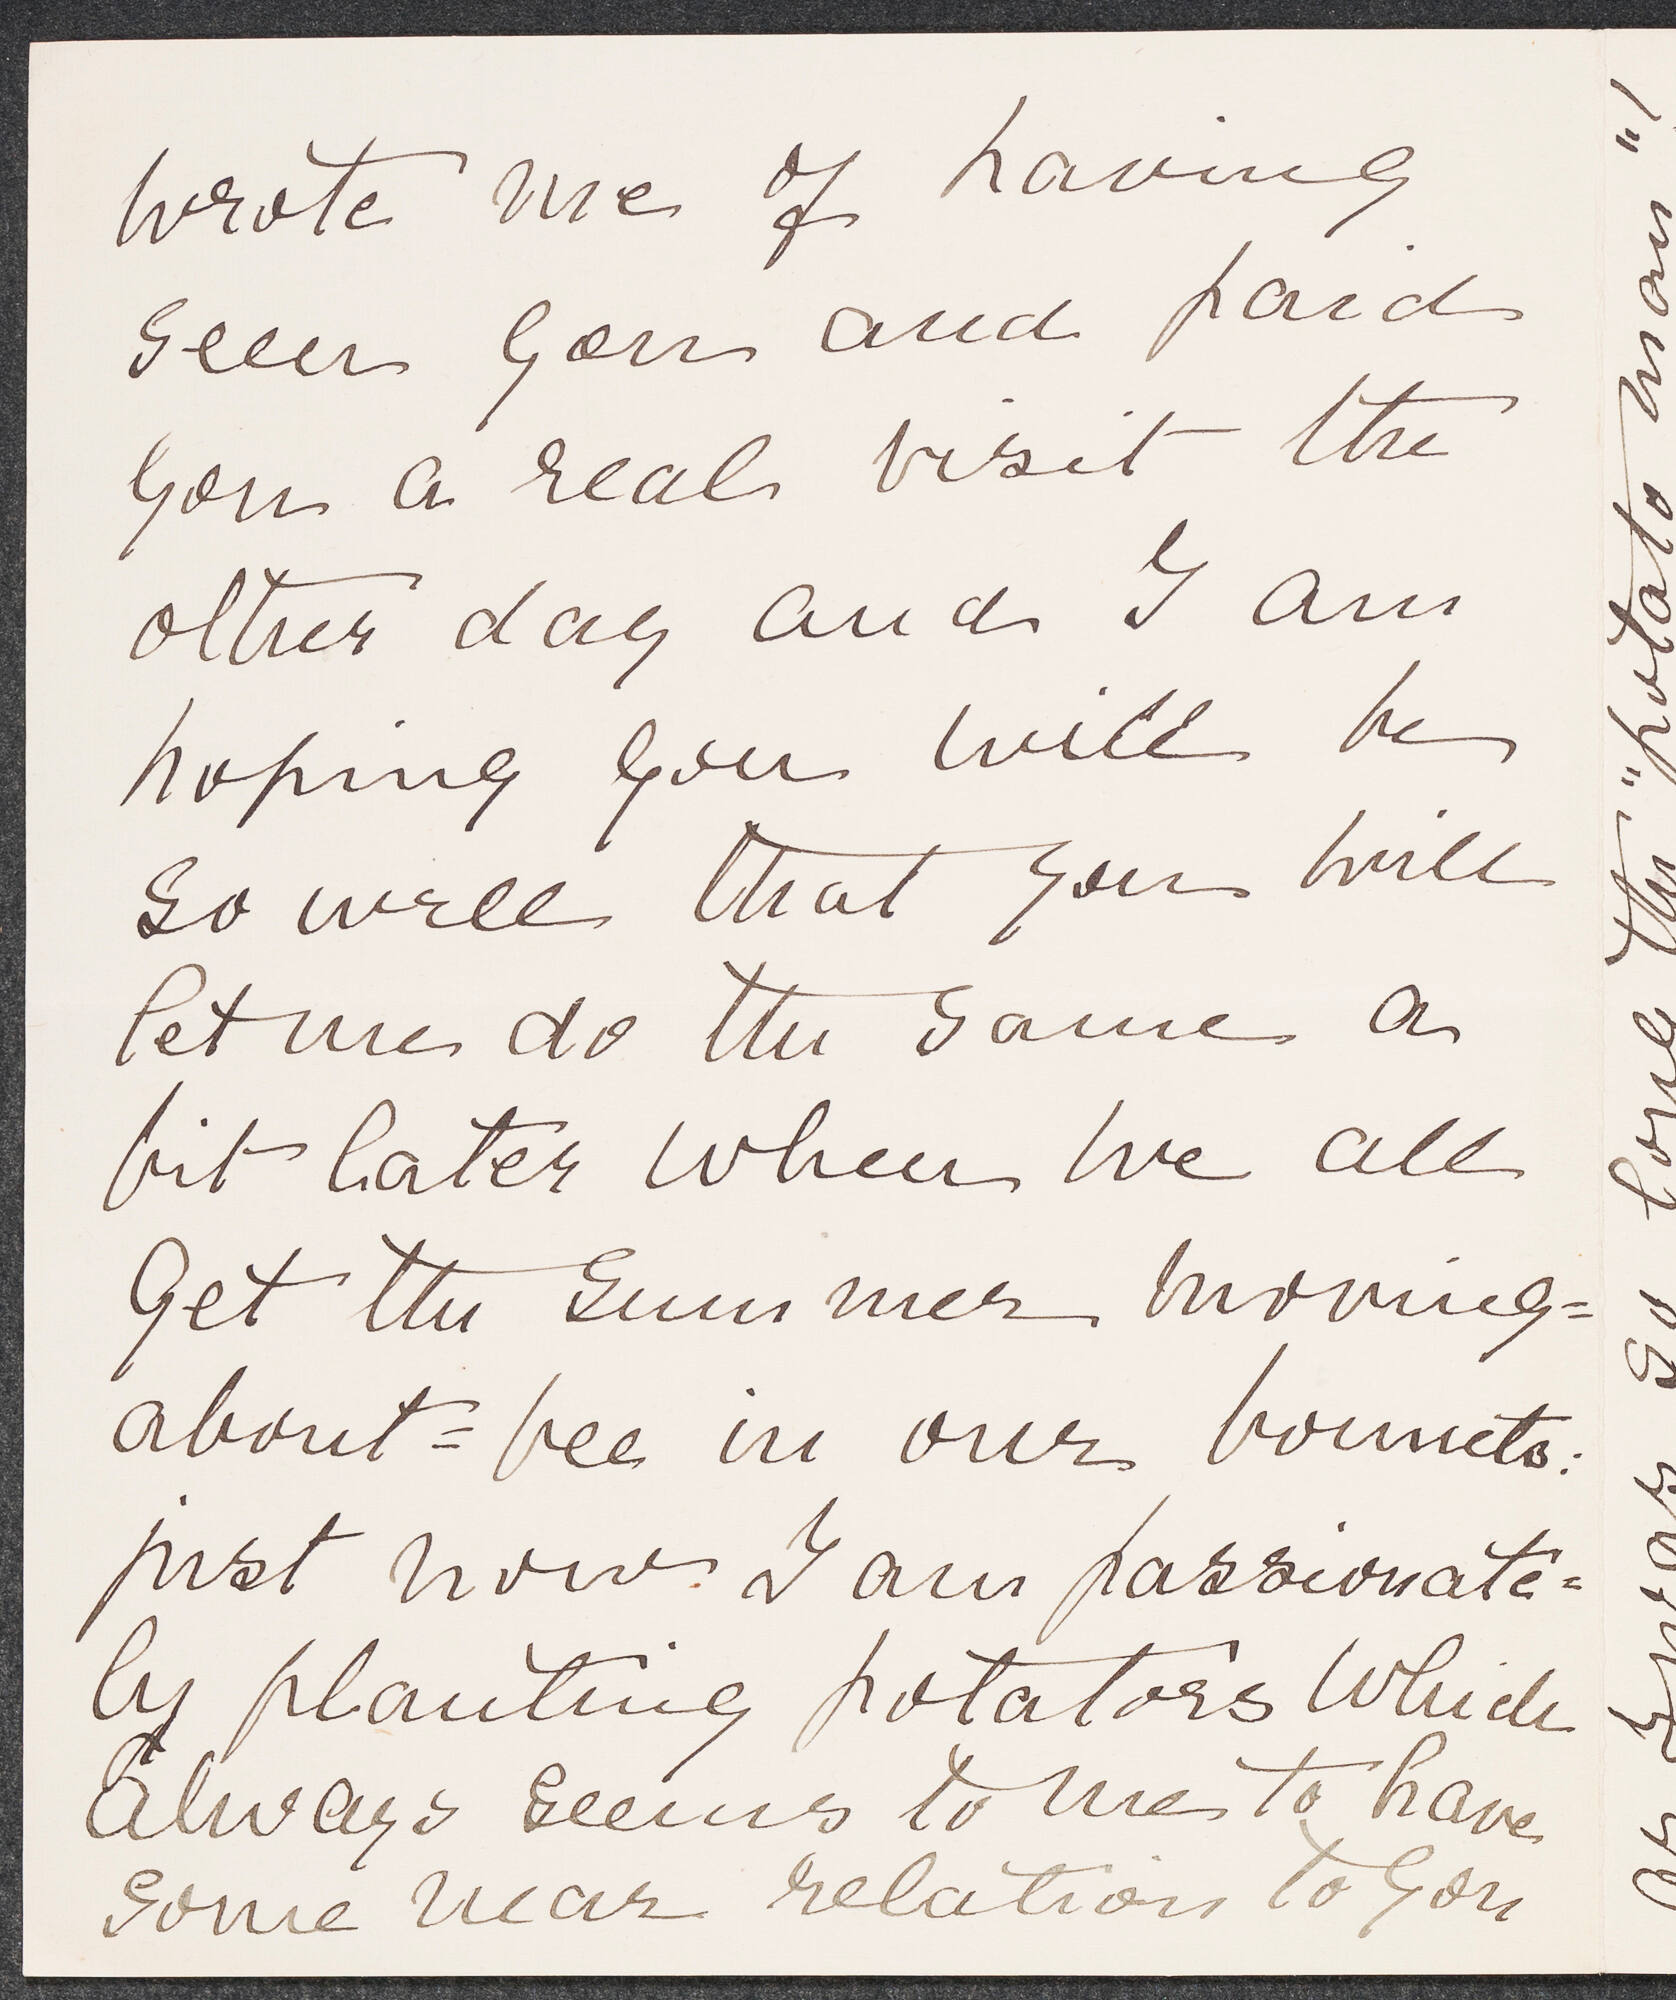 wrote me of having
seen you and paid
you a real visit the
other day and I am
hoping you will be
so well that you will
let me do the same a
bit later when we all
get the summer moving=
about=bee in our bonnets:
just now I am passionate=
ly planting potatoes which
always seems to me to have
some near relation to you
so long the "potato man"!